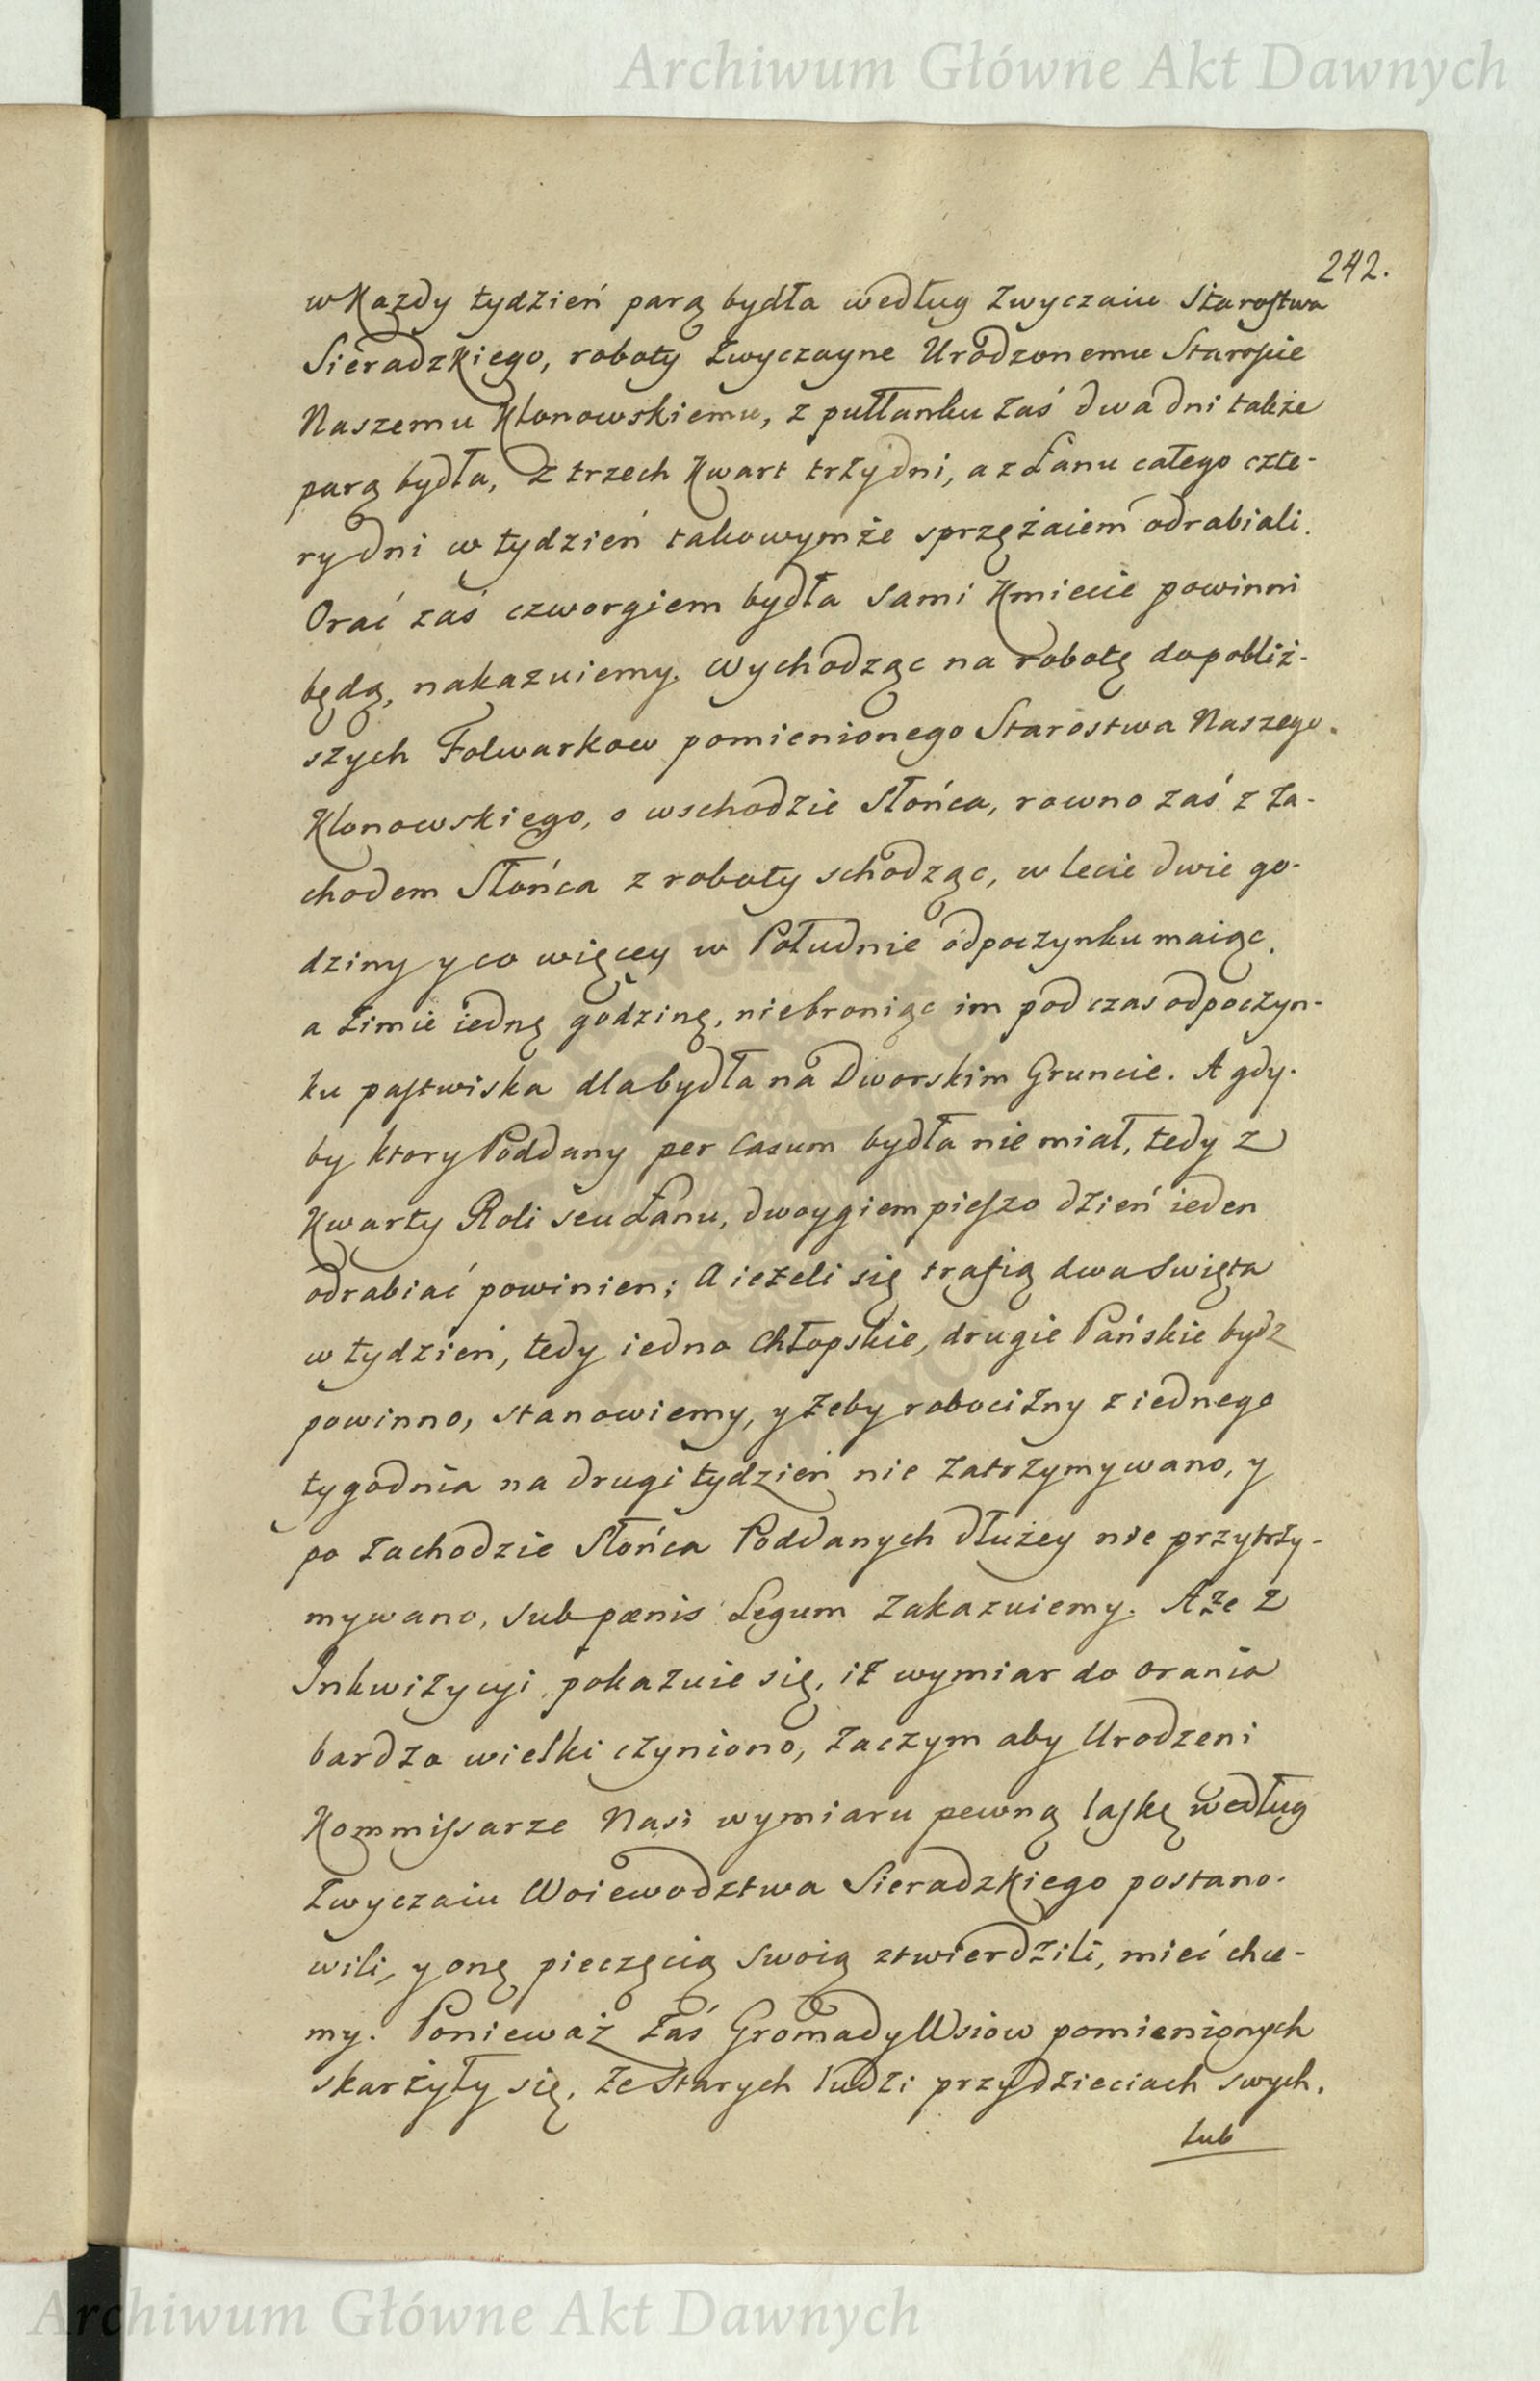 Archiwum Główne Akt Dawnych
242.
w Każdy tydzień parą bydła według zwyczaiu Starostwa
Sieradzkiego, roboty zwyczayne Urodzonemu Staroście
Naszemu Klonowskiemu, z pułłanku zaś dwa dni także
parą bydła, z trzech Kwart trzy dni, a z Łanu całego czte-
ry dni w tydzień takowymże sprzężaiem odrabiali.
Orać zaś czworgiem bydła sami Kmiecie powinni
będą, nakazuiemy. Wychodząc na robotę do pobliż-
szych Folwarkow pomienionego Starostwa Naszego
Klonowskiego, o wschodzie Słońca, rowno zaś z za-
chodem Słońca z roboty schodząc, w lecie dwie go-
dziny y co więcey w Południe odpoczynku maiąc,
a zimie iednę godzinę, niebroniąc im pod czas odpoczyn-
ku pastwiska dla bydła na Dworskim Gruncie. A gdy-
by ktory Poddany per Casum bydła nie miał, tedy z
Kwarty Roli seu Łanu, dwoygiem pieszo dzień ieden
odrabiać powinien; A ieżeli się trafią dwa Swięta
w tydzień, tedy iedno Chłopskie, drugie Pańskie bydź
powinno, stanowiemy, y żeby robocizny z iednego
tygodnia na drugi tydzień nie zatrzymywano, y
po zachodzie Słońca Poddanych dłużey nie przytrzy-
mywano, sub pœnis Legum zakazuiemy. A że z
Inkwizycyi pokazuie się, iż wymiar do orania
bardzo wielki czyniono, zaczym aby Urodzeni
Kommissarze Nasi wymiaru pewną laskę według
zwyczaiu Woiewodztwa Sieradzkiego postano-
wili, y onę pieczęcią swoią ztwierdzili, mieć chce-
my. Ponieważ zaś Gromady Wsiow pomienionych
skarżyły się, że starych ludzi przy dzieciach swych,
lub
Archiwum Główne Akt Dawnych